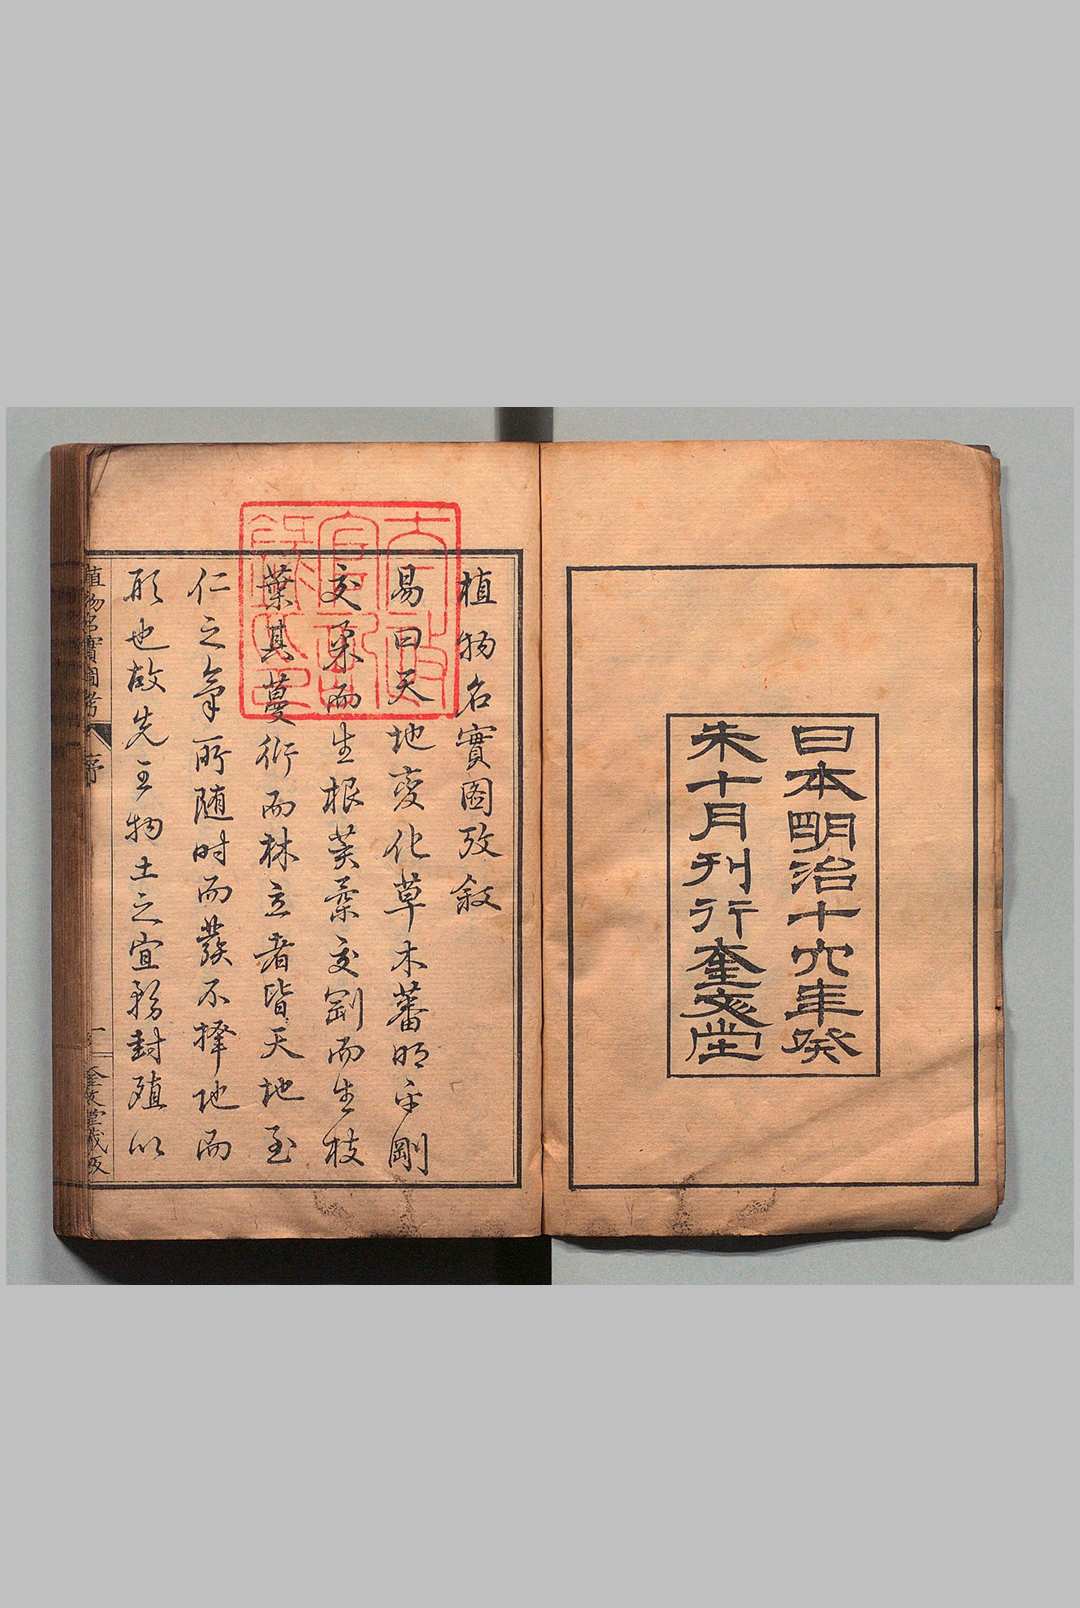 日本明治十六年癸
未十月刊行奎文堂
植物名實圖攷敘
易曰天地變化草木蕃明乎剛
交柔而生根荄柔交剛而生枝
葉其蔓衍而林立者皆天地至
仁之氣所随时而發不擇地而
形也故先王物土之宜務封殖以
植物名實圖考 序 一 奎文堂藏版